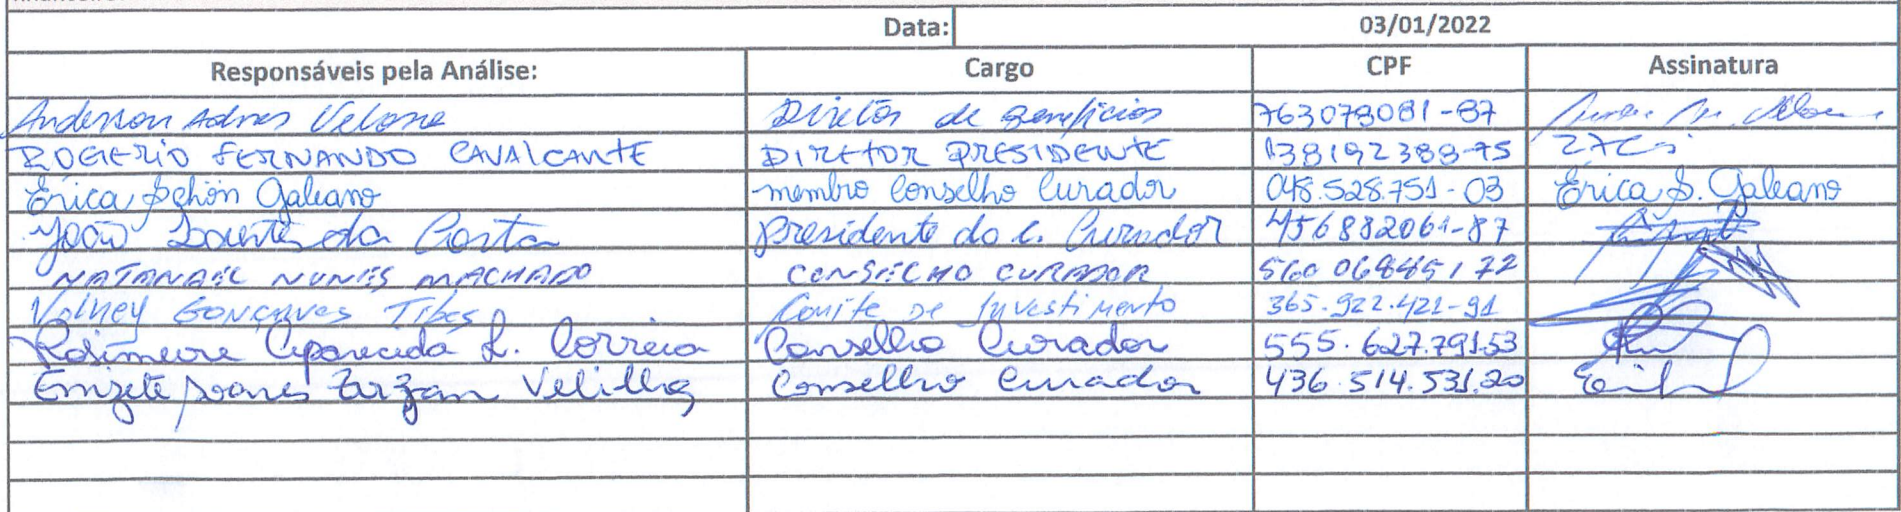 Data: 03/01/2022
Responsáveis pela Análise: Cargo CPF Assinatura
Anderson Adnes Diretor de Beneficios 763079081-87
ROGERIO FERNANDO CAVALCANTE DIRETOR PRESIDENTE 138192388-75
Érica Schön Galeano membro Conselho Curador 048.528.751-03 Érica S. Galeano
João da Costa presidente do C. Curador 456882061-87
NATANAEL NUNES MACHADO CONSELHO CURADOR 560 06845172
Volney Gonçalves Tibes Comite de Investimento 365.922.421-91
Rosimeire Aparecida L. Correia Conselho Curador 555.627.791.53
Enizete Soares Conselho Curador 436.514.531.20